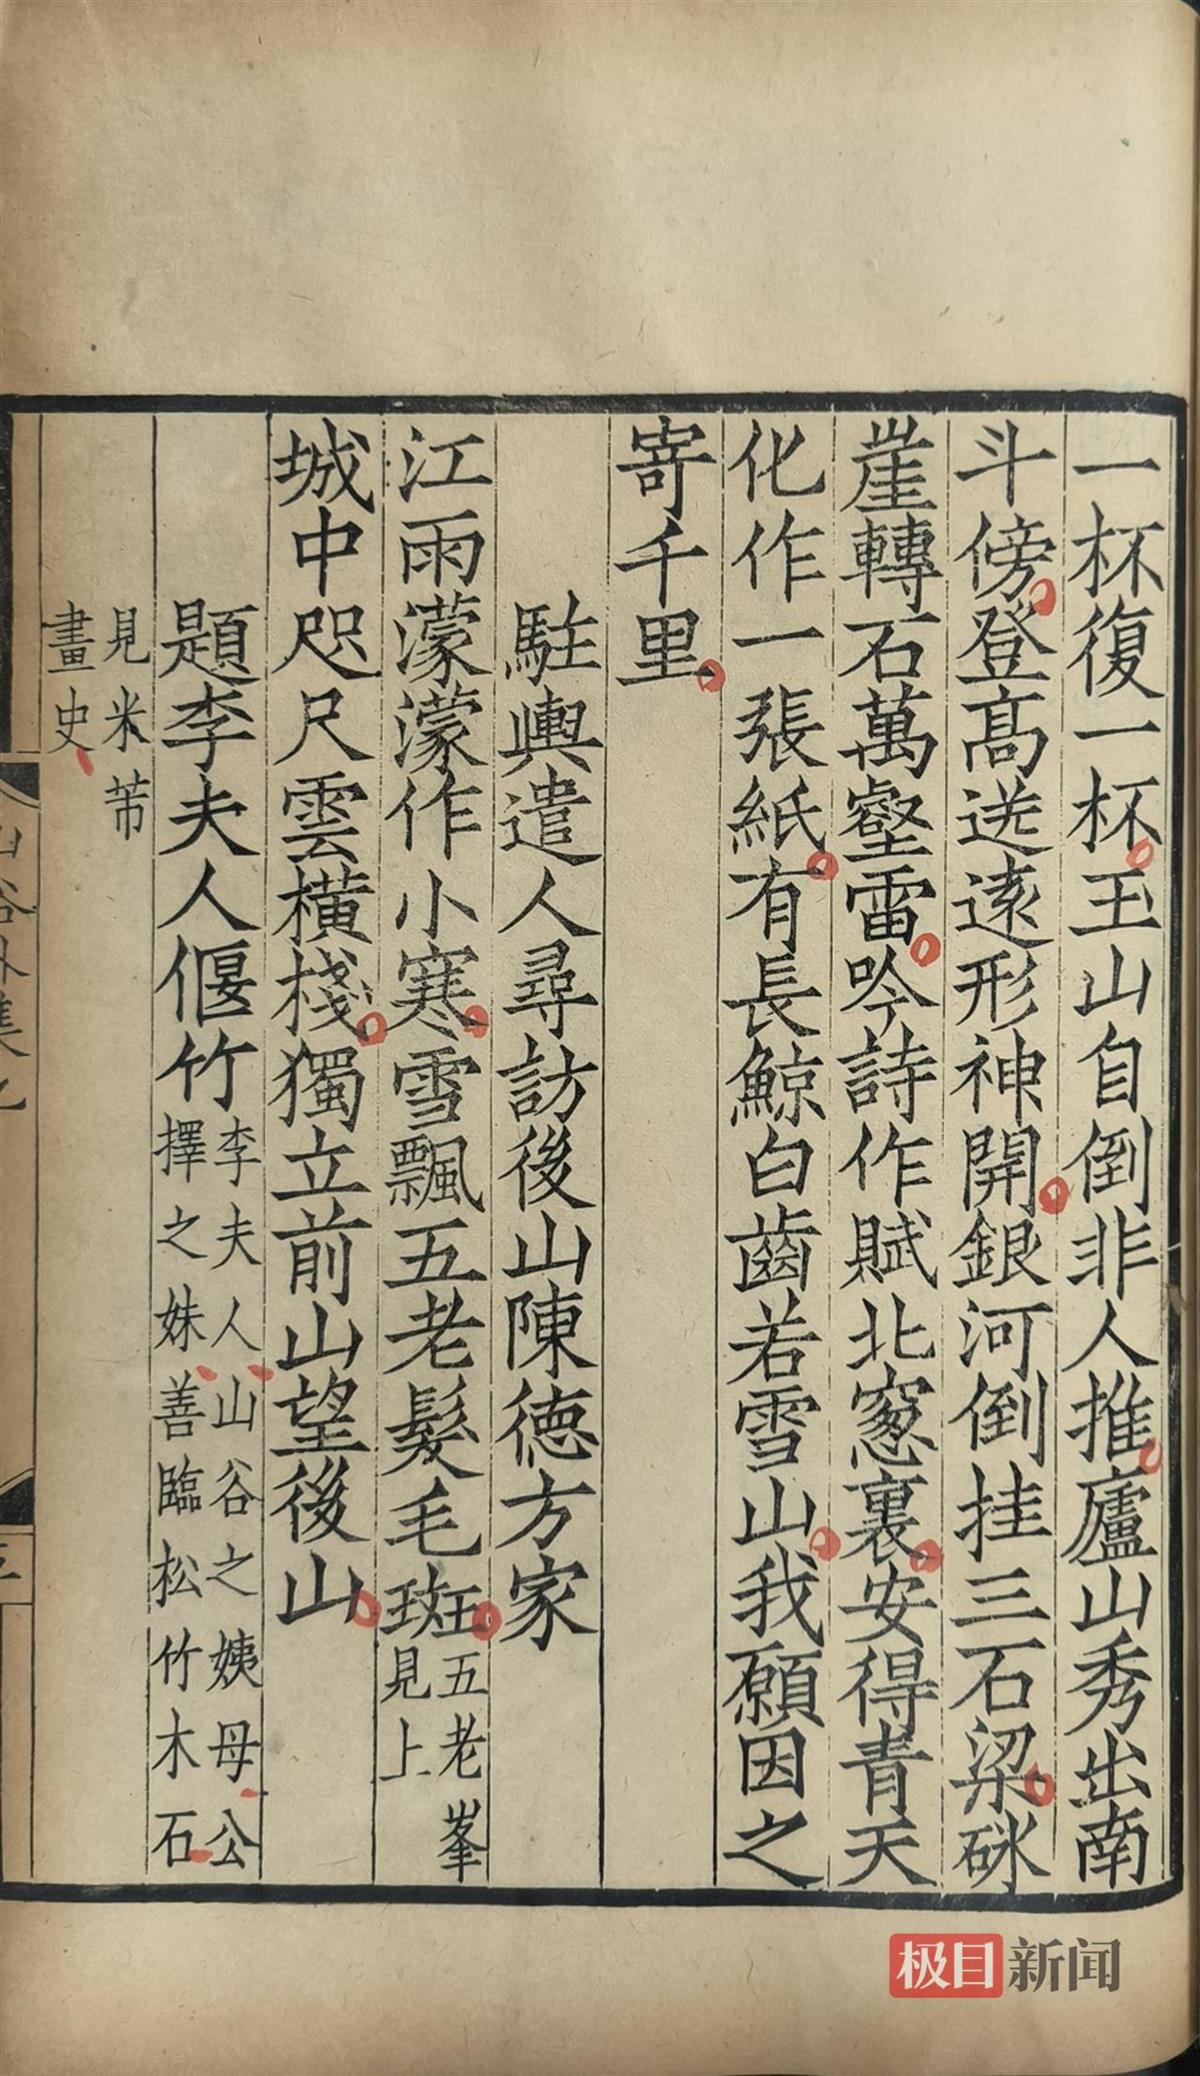 一杯復一杯玉山自倒非人推廬山秀出南
斗傍登髙送逺形神開銀河倒挂三石梁砯
崖轉石萬壑雷吟詩作賦北窻裏安得青天
化作一張紙有長鯨白齒若雪山我願因之
寄千里
駐輿遣人尋訪後山陳德方家
江雨濛濛作小寒雪飄五老髮毛斑五老峯
見上
城中咫尺雲横棧獨立前山望後山
題李夫人偃竹李夫人山谷之姨母公
擇之妹善臨松竹木石
見米芾
畫史
山谷外集九
极目新闻